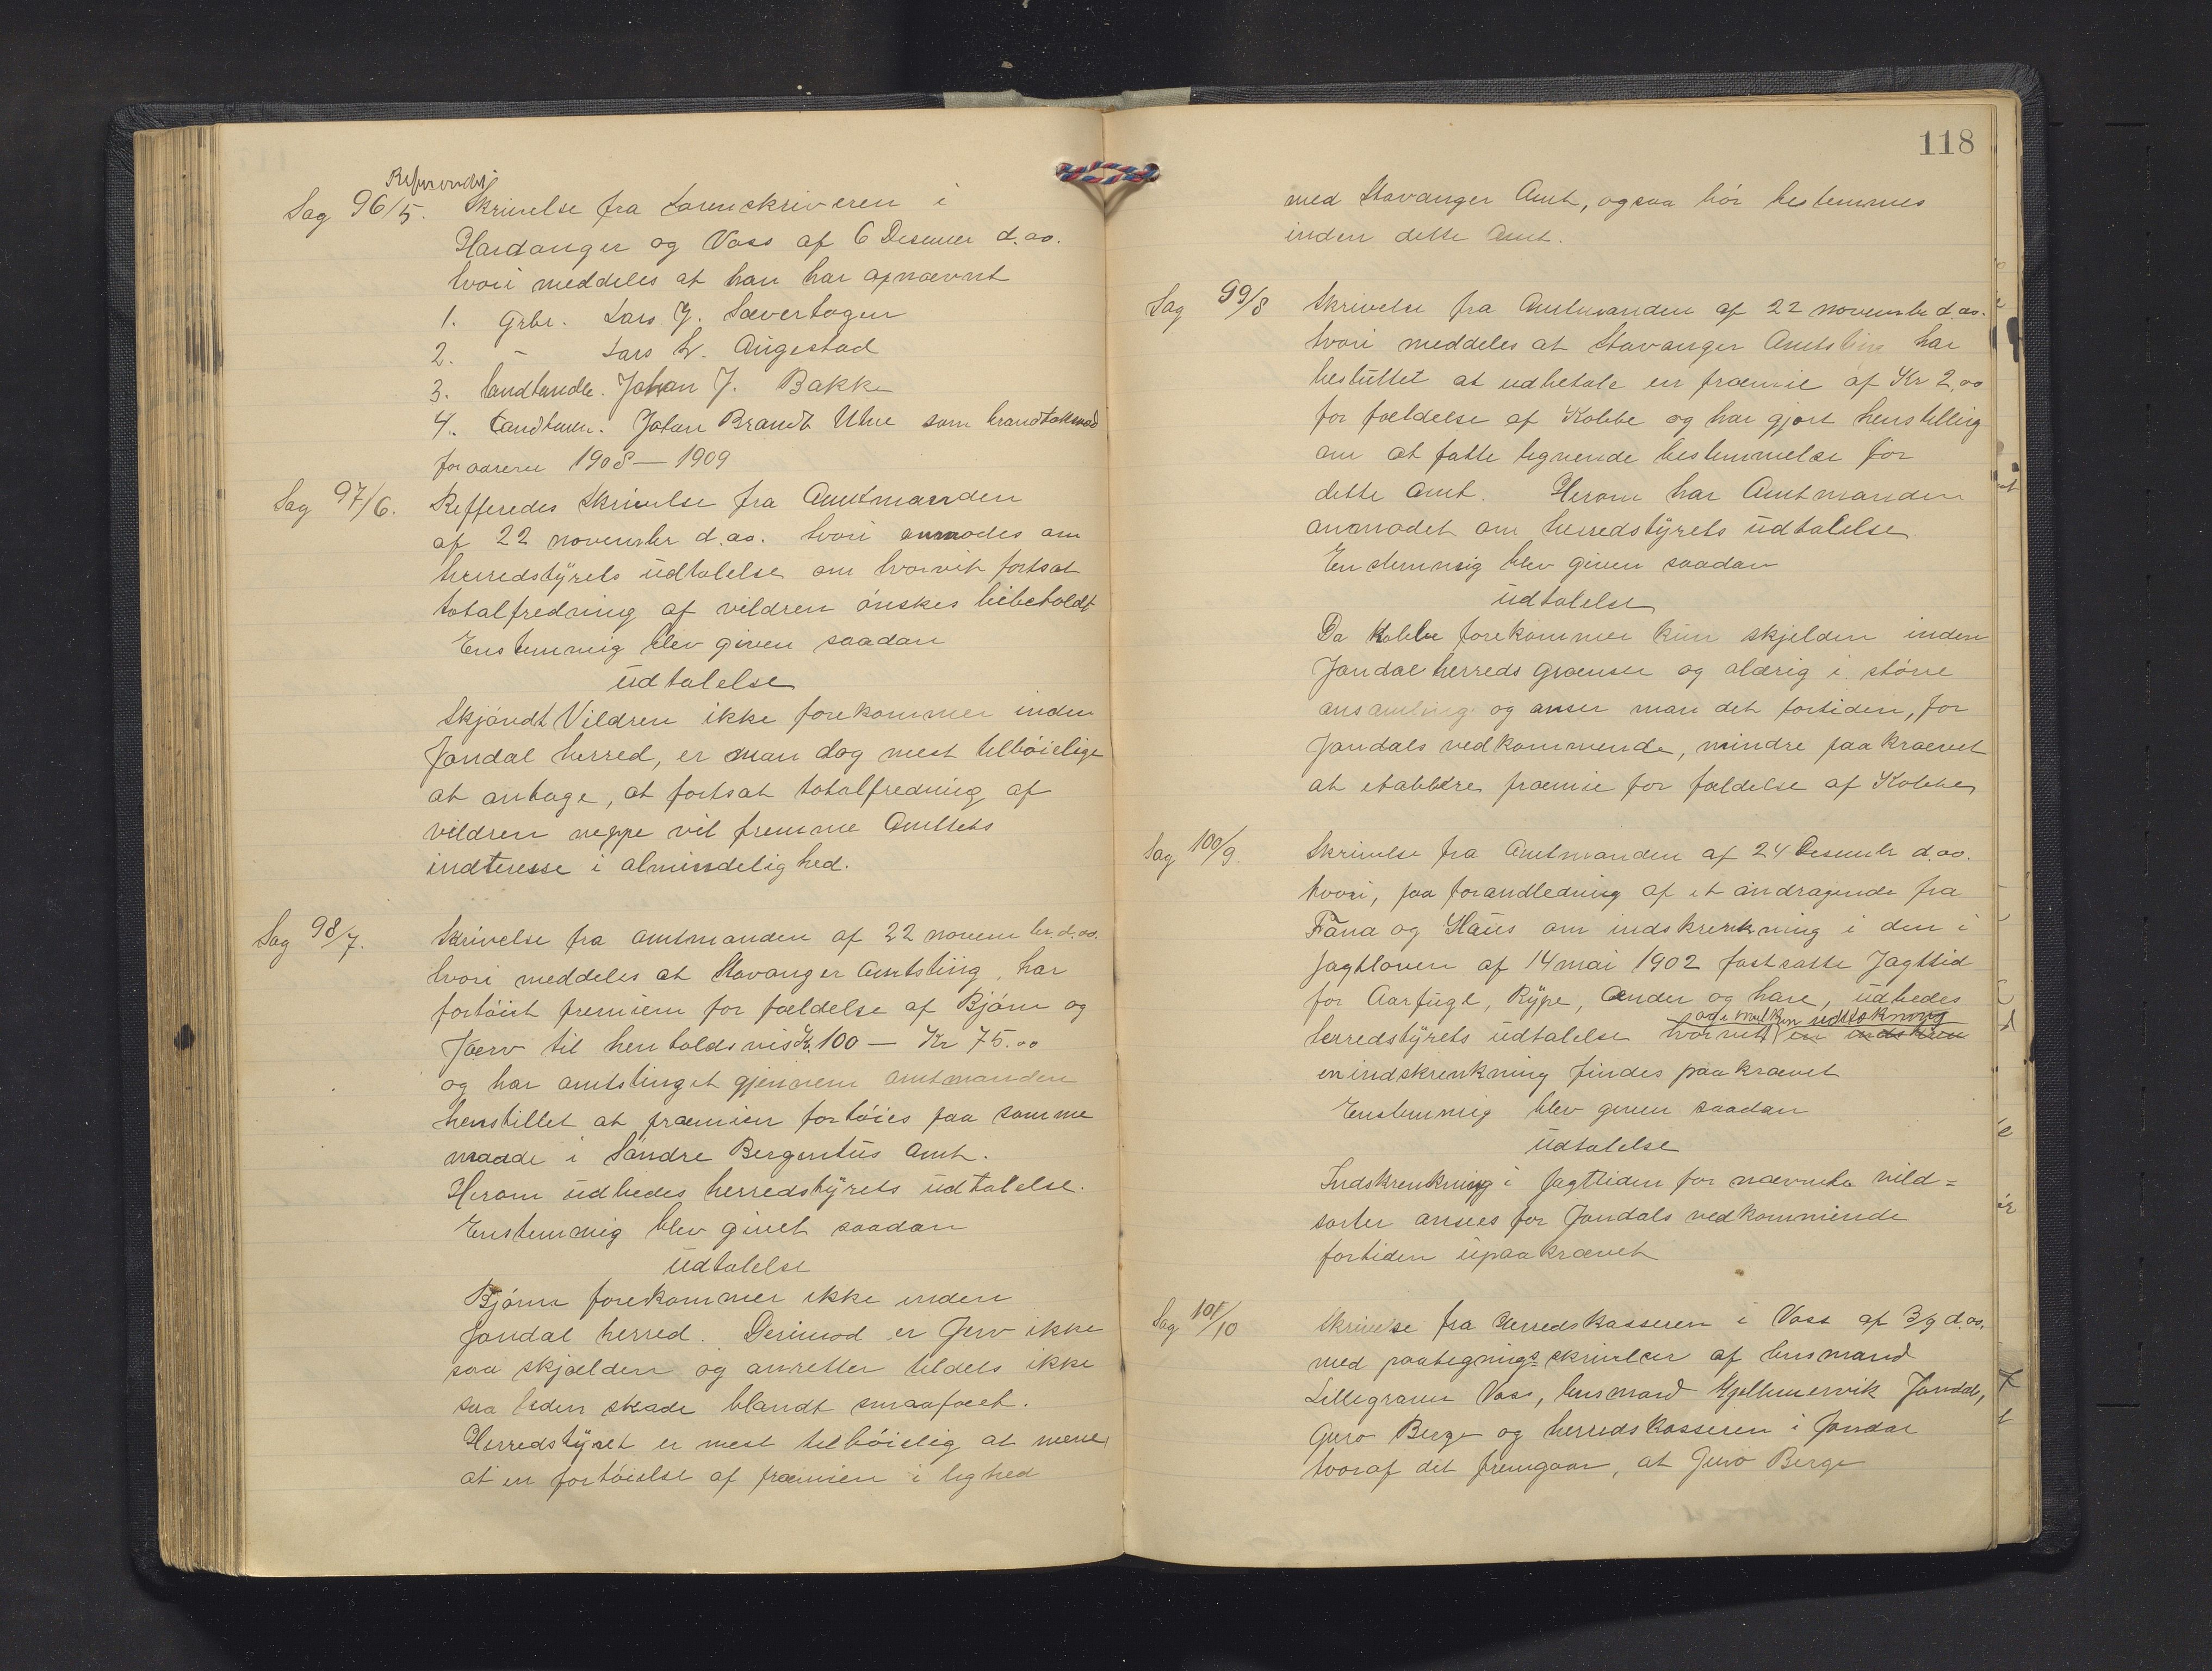 Sag 96/5. Skrivelse fra Sorenskriveren i
Hardanger og Voss af 6 Desember d.aa.
hvori meddeles at han har opnævnt
1. Grbr. Lars J. Sævertagen
2. – Lars L. Augestad
3. landhandle. Johan J. Bakke
4. Landhan. Johan Brandt Uhe som brandtakmæd
for aarene 1908 – 1909
Sag 97/6. Refferedes Skrivelse fra Amtmanden
af 22 november d.aa. hvori anmodes om
herredstyrets udtalelse om hvorvit fortsat
totalfredning af vildren ønskes bibeholdt
Enstemmig blev given saadan
udtalelse
Skjøndt Vildren ikke forekommer inden
Jondal herred, er man dog mest tilbøielige
at antage, at fortsat totalfredning af
vildren neppe vil fremme Amttets
indteresse i almindelighed.
Sag 98/7. Skrivelse fra amtmanden af 22 novembr. d.aa.
hvori meddeles at Stavanger Amtsting, har
forhøiet premien for fældelse af Bjørn og
Jærv til henholdsvis Kr. 100 – Kr 75.00
og har amtstinget gjennem amtmanden
henstillet at præmien forhøies paa samme
maade i Søndre Bergenhus Amt.
Herom udbedes herredstyrets udtalelse.
Enstemmig blev givet saadan
udtalelse
Bjørn forekommer ikke inden
Jondal herred. Derimod er Jerv ikke
saa skjælden og anretter tildels ikke
saa liden skade blandt smaafæet.
Herredstyret er mest tilbøielig at mene,
at en forhøielse af præmien i lighed
118
med Stavanger Amt, ogsaa bør bestemmes
inden dette Amt.
Sag 99/8 Skrivelse fra Amtmanden af 22 novembr d.aa.
hvori meddeles at Stavanger Amtsting har
besluttet at udbetale en præmie af Kr 2,00
for fældelse af Kobbe og har gjort henstilling
om at fatte lignende bestemmelse for
dette Amt. Herom har Amtmanden
anmodet om herredstyrets udtalelse.
Enstemmig blev given saadan
udtalelse
Da Kobbe forekommer kun skjelden inden
Jondal herreds grænser og aldrig i større
ansamling og anser man det fortiden, for
Jondals vedkommende, mindre paakrævet
at etablere præmie for fældelse af Kobbe
Sag 100/9. Skrivelse fra Amtmanden af 24 Desembr d.aa.
hvori, paa forandledning af et andragende fra
Fana og Haus om indskrenkning i den i
Jagtloven af 14 mai 1902 fastsatte Jagttid
for Aarfugl, Rype, Ænder og hare, udbedes
og i hvilken udstrekning
herredstyrets udtalelse hvorvitt en indskren
en indskrenkning findes paakrævet
Enstemmig blev given saadan
udtalelse
Indskrenkning i Jagttiden for nævnte vild=
sorter ansees for Jondals vedkommende
fortiden upaakrævet
Sag 101/10 Skrivelse fra Herredskasseren i Voss af 3/9 d.aa.
med paategnings=skrivelser af lensmand
Lillegraven Voss, lensmand Kjelkenervik Jondal,
Guro Berge og herredskasseren i Jondal
hvoraf det fremgaar, at Guro Berge